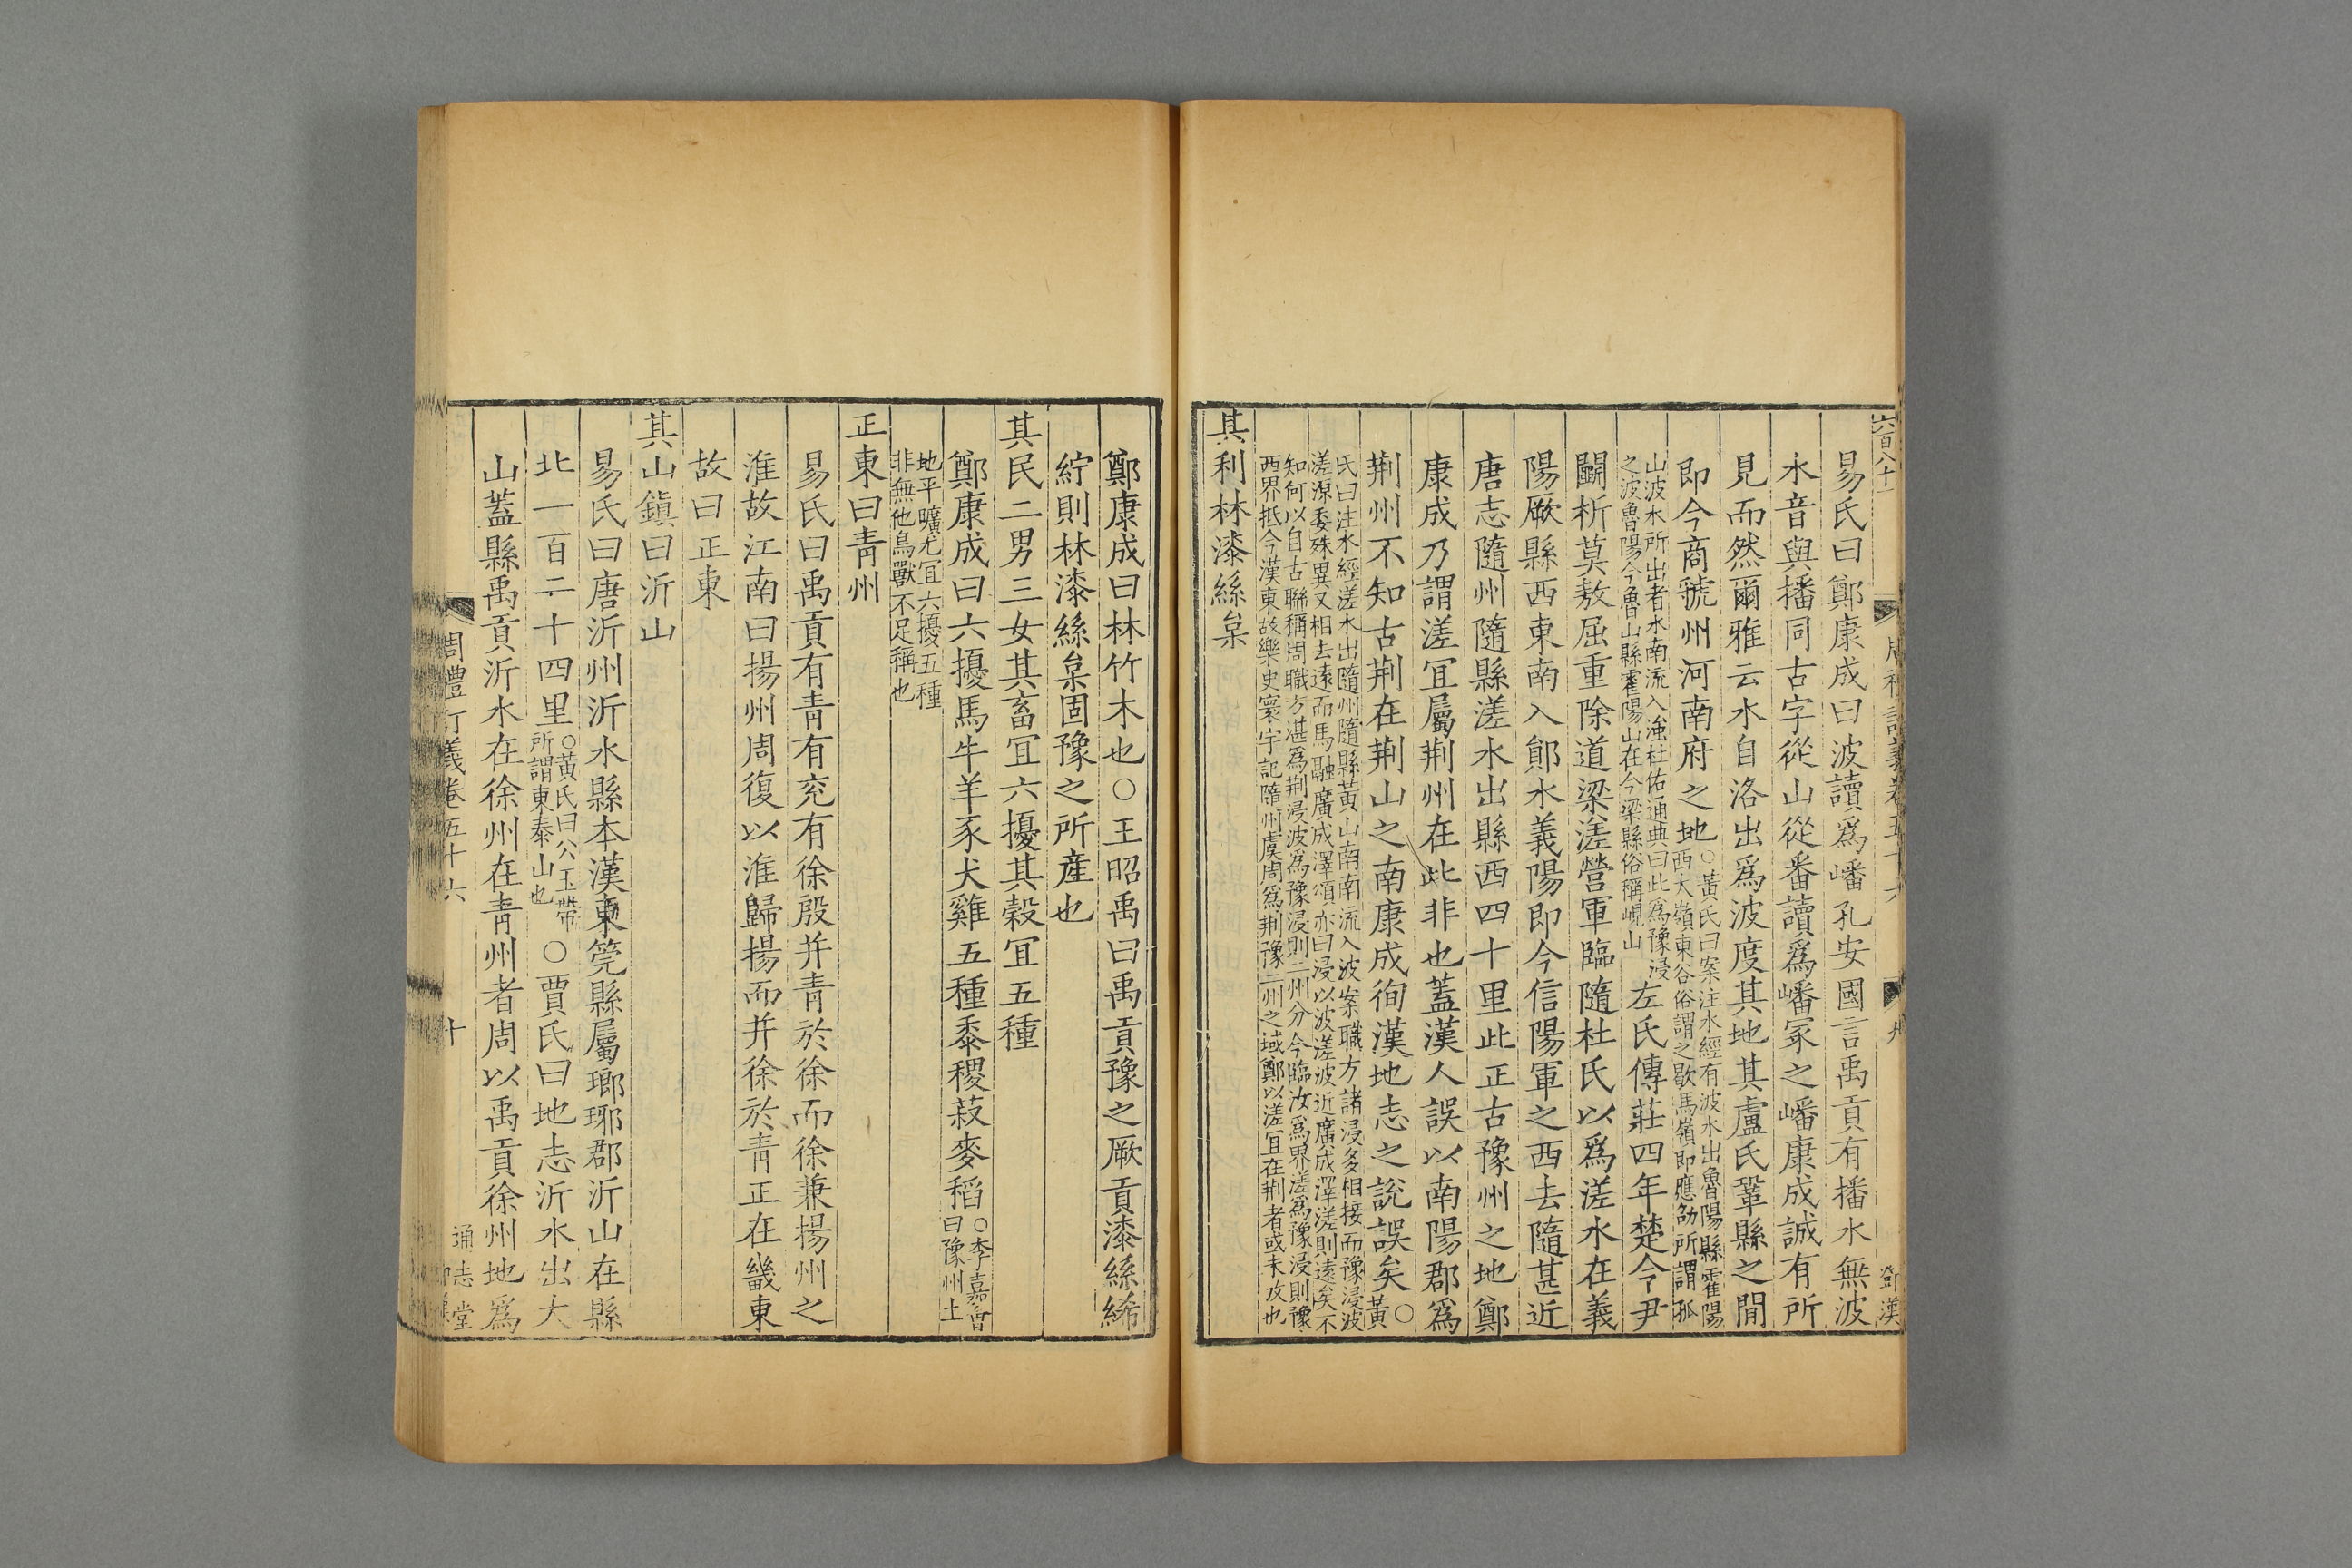 六百八十一
易氏曰鄭康成曰波讀爲嶓孔安國言禹貢有播水無波
水音與播同古字從山從番讀爲嶓冢之嶓康成誠有所
見而然爾雅云水自洛出爲波度其地其盧氏鞏縣之間
即今商虢州河南府之地○黃氏曰案注水經有波水出魯陽縣霍陽
西大嶺東谷俗謂之歇馬嶺即應劭所謂孤
山波水所出者水南流入滍杜佑通典曰此爲豫浸
之波魯陽今魯山縣霍陽山在今梁縣俗稱峴山
左氏傳莊四年楚令尹
鬭祈莫敖屈重除道梁溠營軍臨隨杜氏以爲溠水在義
陽厥縣西東南入鄖水義陽即今信陽軍之西去隨甚近
唐志隨州隨縣溠水出縣西四十里此正古豫州之地鄭
康成乃謂溠宜屬荆州在此非也蓋漢人誤以南陽郡爲
荆州不知古荆在荆山之南康成徇漢地志之說誤矣○
黃
氏曰注水經溠水出隨州隨縣黃山南南流入波案職方諸浸多相接而豫浸波
溠源委殊異又相去遠而馬融廣成澤頌亦曰浸以波溠波近廣成澤溠則遠矣不
知何以自古聯稱周職方湛爲荆浸波爲豫浸則二州分今臨汝爲界溠爲豫浸則豫
西界抵今漢東故樂史寰宇記隋州虞周爲荆豫二州之域鄭以溠宜在荆者或未攷也
其利林漆絲枲
九
鄧漢
鄭康成曰林竹木也○王昭禹曰禹貢豫之厥貢漆絲絺
紵則林漆絲枲固豫之所產也
其民二男三女其畜宜六擾其穀宜五種
鄭康成曰六擾馬牛羊豕犬雞五種黍稷菽麥稻○李嘉會
曰豫州土
地平曠尤宜六擾五種
非無他鳥獸不足稱也
正東曰青州
易氏曰禹貢有青有兖有徐殷并青於徐而徐兼揚州之
淮故江南曰揚州周復以淮歸揚而并徐於青正在畿東
故曰正東
其山鎮曰沂山
易氏曰唐沂州沂水縣本漢東筦縣屬瑯琊郡沂山在縣
北一百二十四里○黃氏曰公玉帶
所謂東泰山也
○賈氏曰地志沂水出大
山蓋縣禹貢沂水在徐州在青州者周以禹貢徐州地爲
周禮訂義卷五十六
十
通志堂